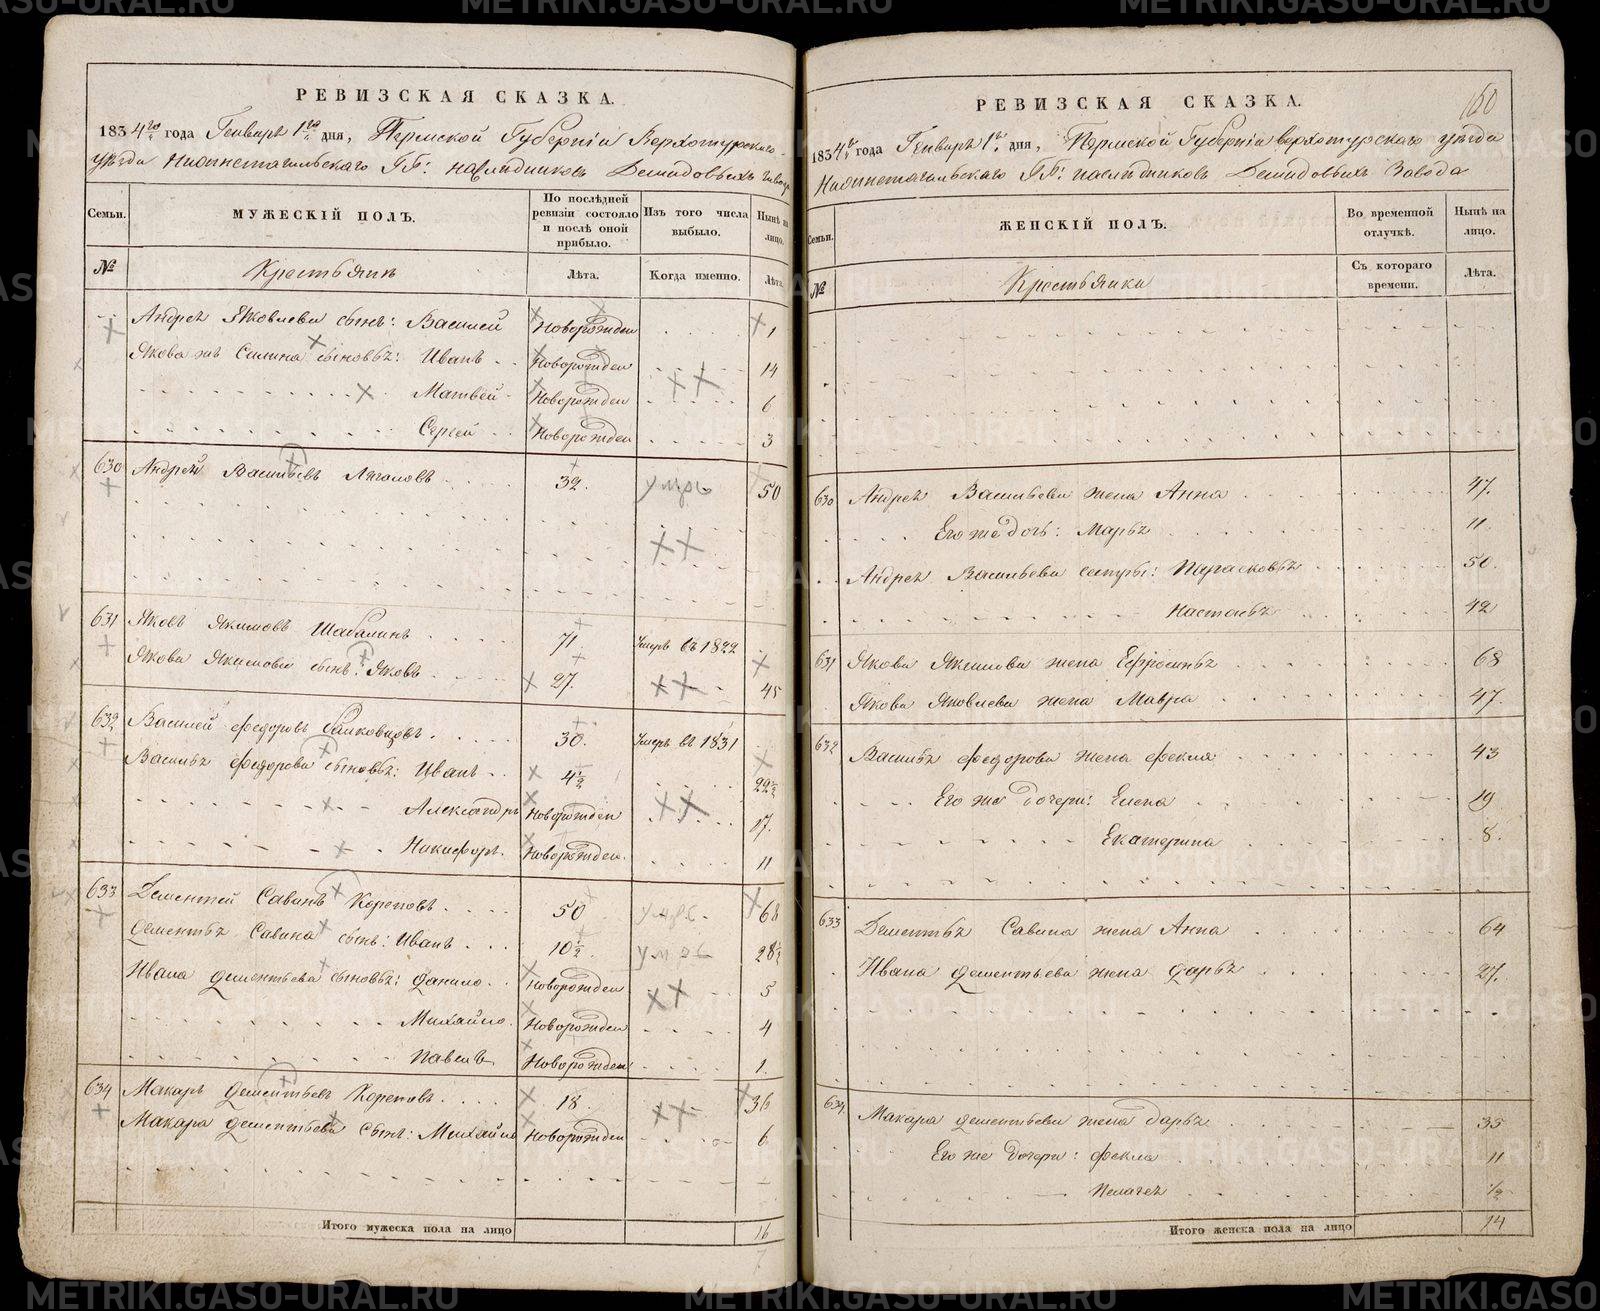 РЕВИЗСКАЯ СКАЗКА.
1834го года Генваря 1го дня, Пермской Губернiи Верхотурскаго
уѣзда Нижнетагильскаго ГГ: наслѣдниковъ Демидовыхъ завода
Семьи.
МУЖЕСКIЙ ПОЛЪ.
По послѣдней ревизiи состояло и послѣ оной прибыло.
Изъ того числа выбыло.
Нынѣ на лицо.
№
Крестьяне
Лѣта.
Когда именно.
Лѣта.
Андрея Яковлева сынъ: Василей Новорожден 1
Якова же Силина сыновья: Иванъ Новорожден 14
Матвей Новорожден 6
Сергей Новорожден 3
630 Андрей Васильевъ 32. умре 50
631 Яковъ Якимовъ Шабалинъ 71 Умеръ въ 1822
Якова Якимова сынъ: Яковъ 27. 45
632 Василей Федоровъ 30. Умеръ въ 1831
Василья Федорова сыновья: Иванъ 4½ 22½
Александръ Новорожден 17.
Никифоръ. Новорожден. 11
633 Дементей Савинъ Кореповъ 50 68
Дементья Савина сынъ: Иванъ 10½ 28½
Ивана Дементьева сыновья: Данило Новорожден 5
Михайло. Новорожден 4
Павелъ Новорожден 1.
634 Макаръ Дементьевъ Кореповъ 18. 36
Макара Дементьева сынъ: Михайло Новорожден 6
Итого мужеска пола на лицо 16
160
РЕВИЗСКАЯ СКАЗКА.
1834го года Генваря 1го дня, Пермской Губернiи Верхотурскаго уѣзда
Нижнетагильскаго ГГ: наслѣдниковъ Демидовыхъ Завода
Семьи.
ЖЕНСКIЙ ПОЛЪ.
Во временной отлучкѣ.
Нынѣ на лицо.
№
Крестьянки
Съ котораго времени.
Лѣта.
630 Андрея Васильева жена Анна 47.
Его же дочь: Марья 11.
Андрея Васильева сестры: Парасковья 50.
Настасья 42
631 Якова Якимова жена Ефросинья 68
Якова Яковлева жена Мавра 47.
632 Василья Федорова жена Фекла 43
Его же дочери: Елена 19
Екатерина 8.
633 Дементья Савина жена Анна 64
Ивана Дементьева жена Дарья 27.
634 Макара Дементьева жена Дарья 35
Его же дочери: Фекла 11
Пелагея ½
Итого женска пола на лицо 14
METRIKI.GASO-URAL.RU